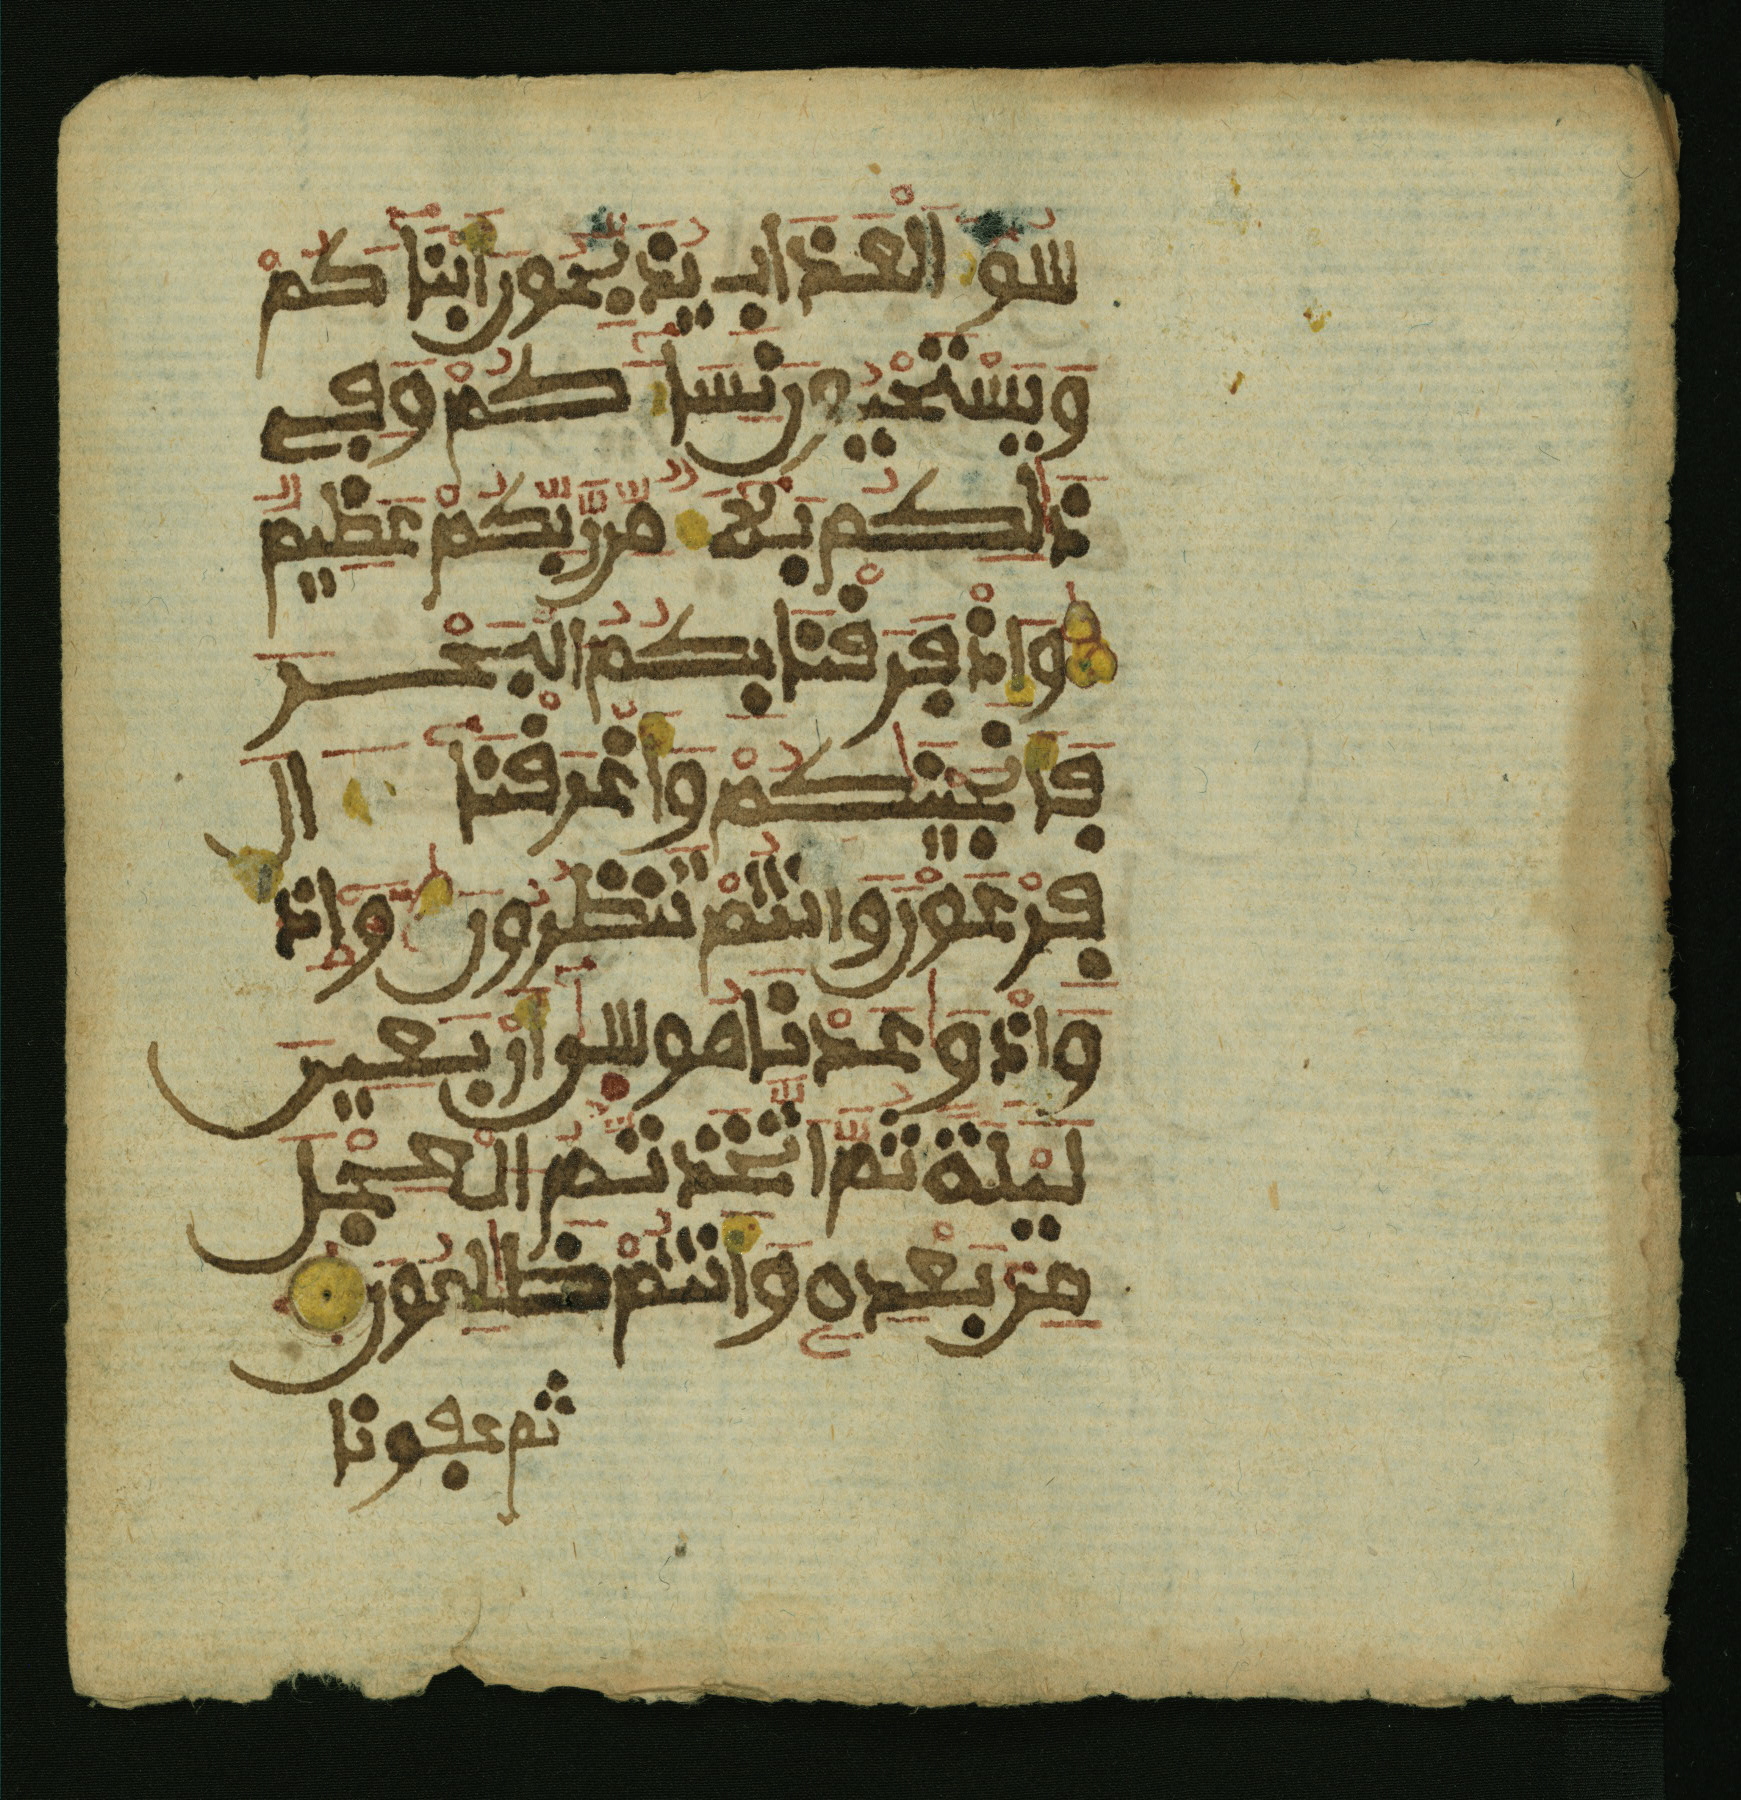 سُوٓءَ الْعَذَابِ يُذَبِّحُونَ أَبْنَآءَكُمْ
وَيَسْتَحْيُونَ نِسَآءَكُمْ وَفِي
ذَٰلِكُم بَلَآءٌ مِّن رَّبِّكُمْ عَظِيمٌ
وَإِذْ فَرَقْنَا بِكُمُ الْبَحْرَ
فَأَنجَيْنَٰكُمْ وَأَغْرَقْنَآ ءَالَ
فِرْعَوْنَ وَأَنتُمْ تَنظُرُونَ وَإِذْ
وَإِذْ وَٰعَدْنَا مُوسَىٰٓ أَرْبَعِينَ
لَيْلَةً ثُمَّ اتَّخَذتُّمُ الْعِجْلَ
مِن بَعْدِهِ وَأَنتُمْ ظَٰلِمُونَ
ثم عفونا